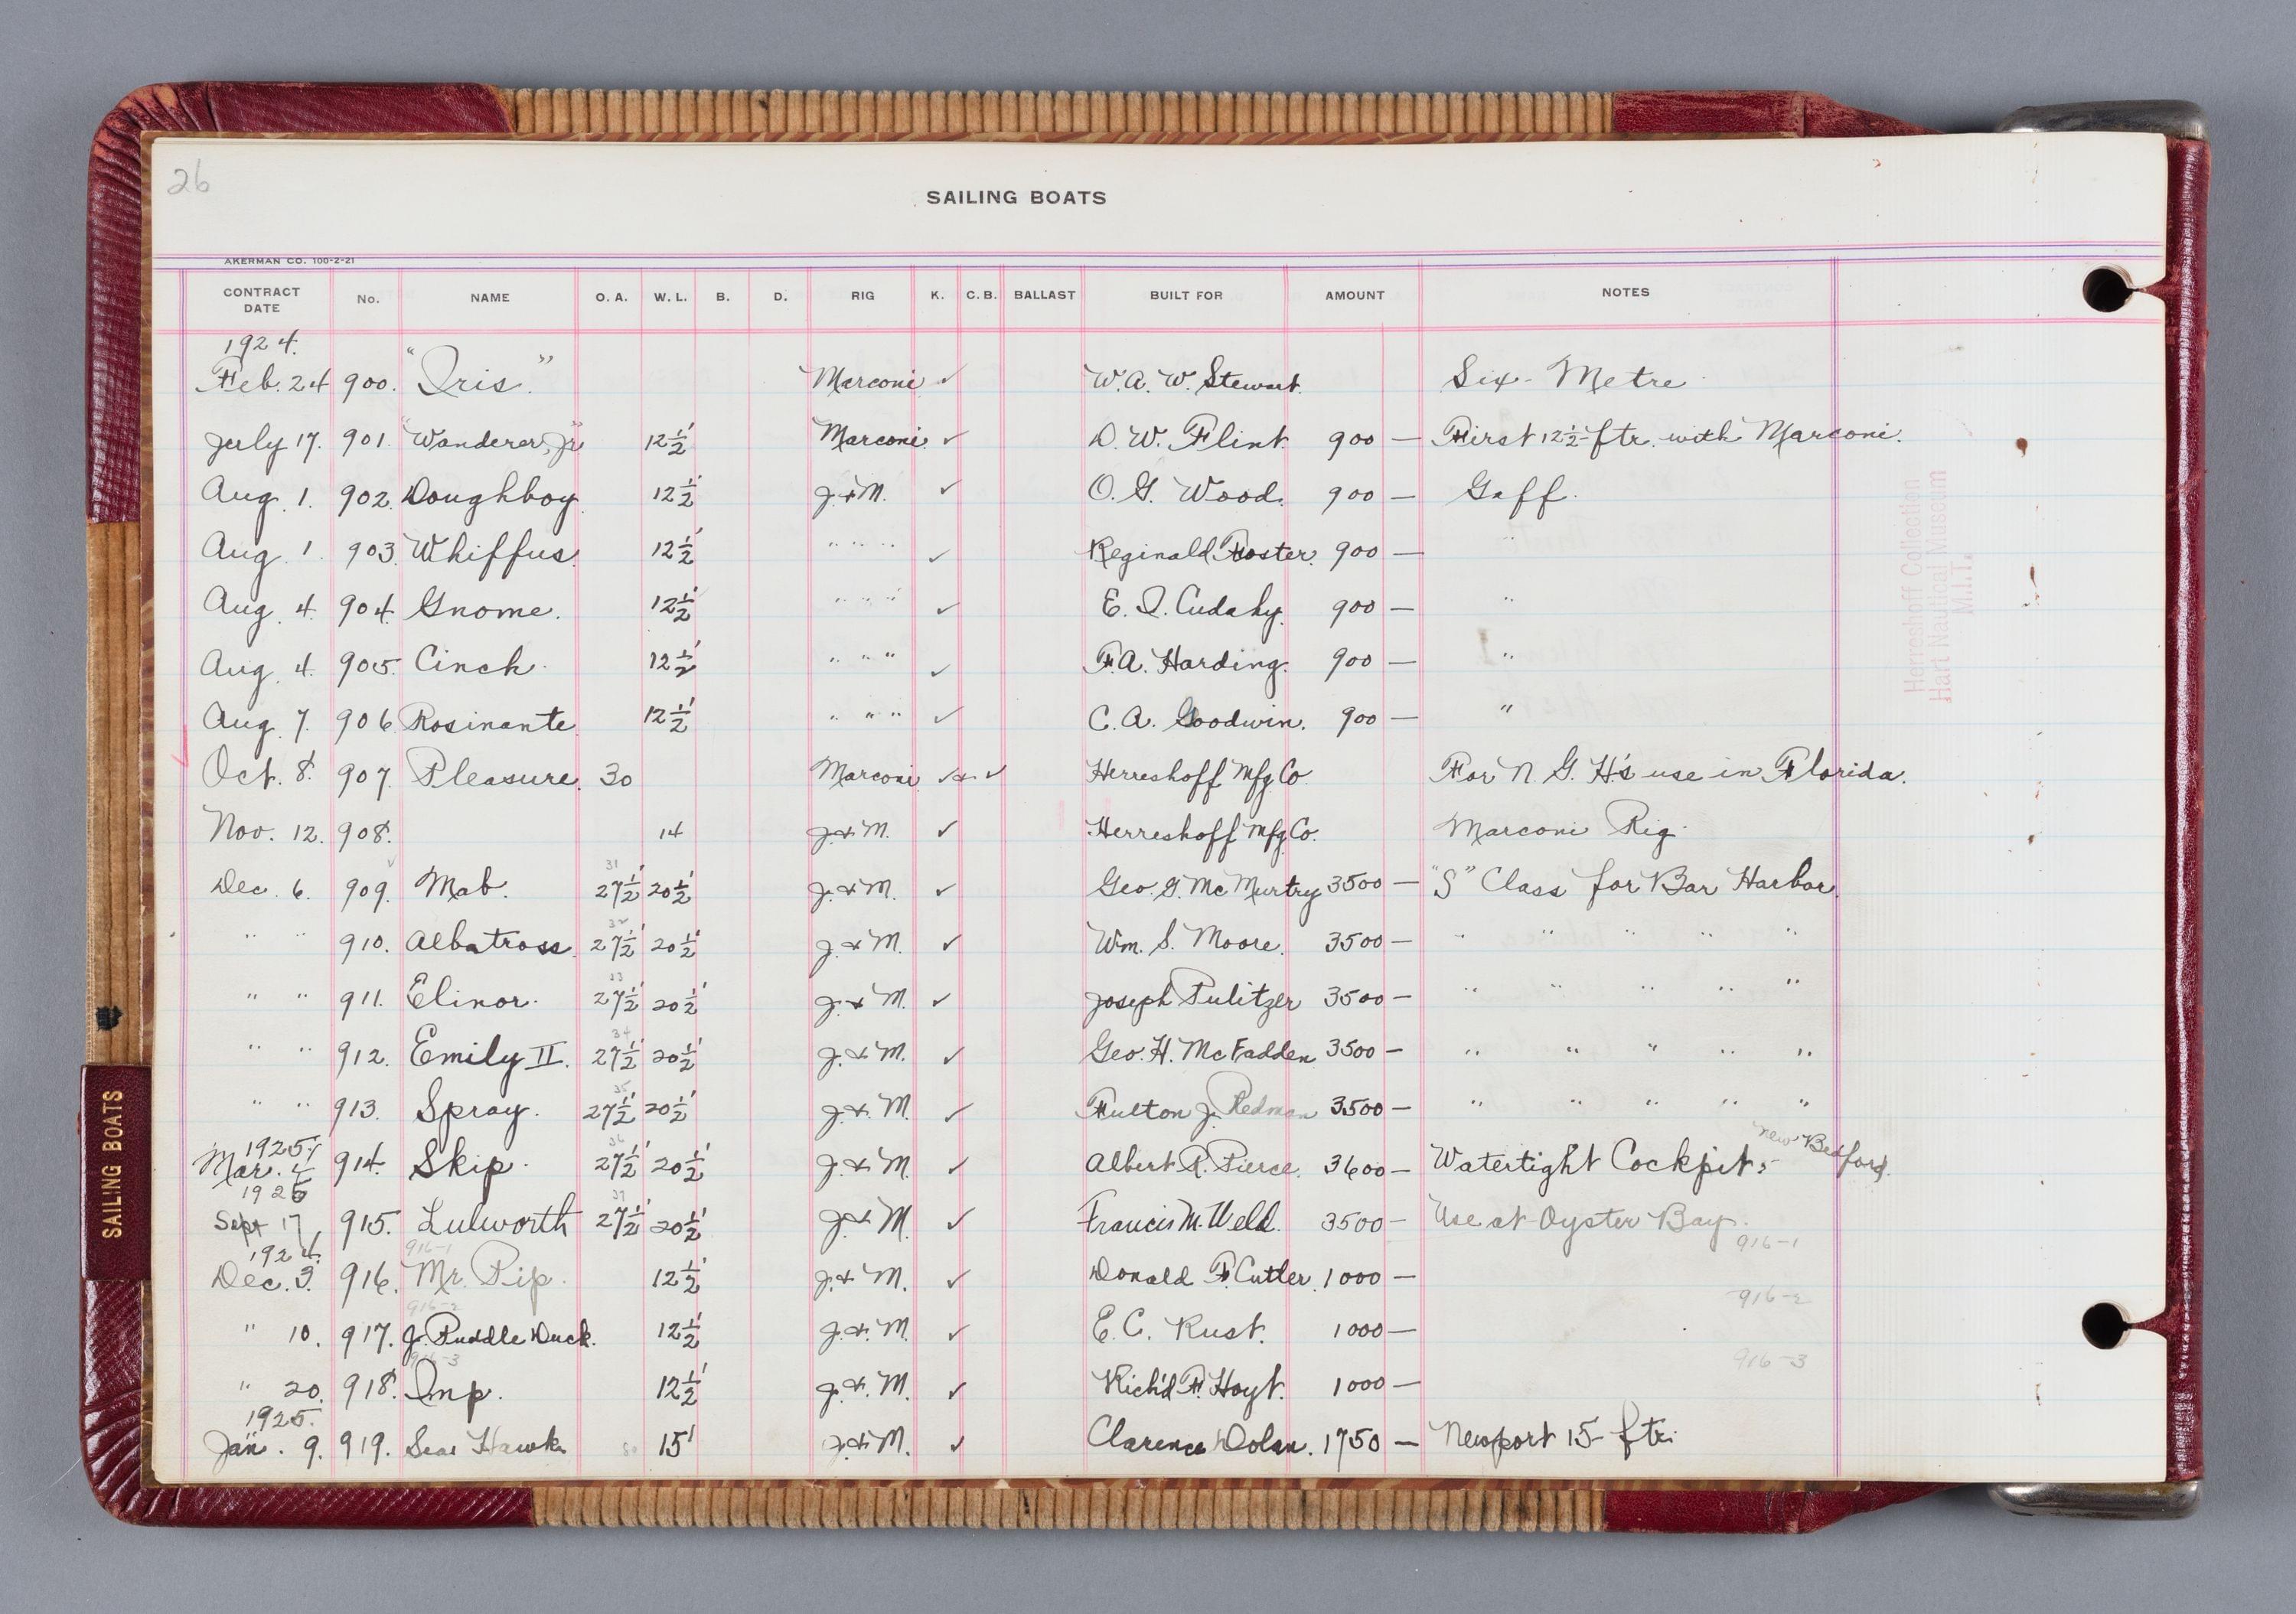 26
SAILING BOATS
AKERMAN CO. 100-2-21
CONTRACT DATE No. NAME O. A. W. L. B. D. RIG K. C. B. BALLAST BUILT FOR AMOUNT NOTES
1924.
Feb. 24 900. "Iris." Marconi ✓ W. A. W. Stewart. Six-Metre
July 17. 901. "Wanderer, Jr" 12½' Marconi. ✓ D. W. Flint. 900 — First 12½-ftr. with Marconi.
Aug. 1. 902. Doughboy. 12½' J. & M. ✓ O. G. Wood. 900 — Gaff.
Aug. 1. 903. Whiffus. 12½' " " " ✓ Reginald Foster. 900 — "
Aug. 4. 904. Gnome. 12½' " " " ✓ E. I. Cudahy. 900 — "
Aug. 4. 905. Cinch. 12½' " " " ✓ F. A. Harding. 900 — "
Aug. 7. 906 Rosinante. 12½' " " " ✓ C. A. Goodwin. 900 — "
Oct. 8. 907. Pleasure. 30 Marconi ✓ & ✓ Herreshoff Mfg Co For N. G. H's use in Florida.
Nov. 12. 908. 14 J. & M. ✓ Herreshoff Mfg Co. Marconi Rig.
31
Dec. 6. 909. Mab. 27½' 20½' J. & M. ✓ Geo. G. McMurtry 3500 — "S" Class for Bar Harbor.
32
" " 910. Albatross. 27½' 20½' J. & M. ✓ Wm. S. Moore. 3500 — " " " " "
33
" " 911. Elinor. 27½' 20½' J. & M. ✓ Joseph Pulitzer 3500 — " " " " "
34
" " 912. Emily II. 27½' 20½' J. & M. ✓ Geo. H. McFadden 3500 — " " " " "
35
" " 913. Spray. 27½' 20½' J. & M. ✓ Fulton J. Redman 3500 — " " " " "
1925. 36 New Bedford.
Mar. 4 914. Skip. 27½' 20½' J. & M. ✓ Albert R. Pierce. 3600 — Watertight Cockpit;
1926 37
Sept 17, 915. Lulworth 27½' 20½' J. & M. ✓ Francis M. Weld. 3500 — Use at Oyster Bay.
1924. 916-1 916-1
Dec. 3. 916. Mr. Pip. 12½' J. & M. ✓ Donald F. Cutler. 1000 —
916-2 916-2
" 10. 917. J. Puddle Duck. 12½' J. & M. ✓ E. C. Rust. 1000 —
916-3 916-3
" 20. 918. Imp. 12½' J. & M. ✓ Rich'd F. Hoyt. 1000 —
1925.
Jan. 9. 919. Sea Hawk 15' J. & M. ✓ Clarence Dolan. 1750 — Newport 15-ftr.
Herreshoff Collection
Hart Nautical Museum
M.I.T.
SAILING BOATS